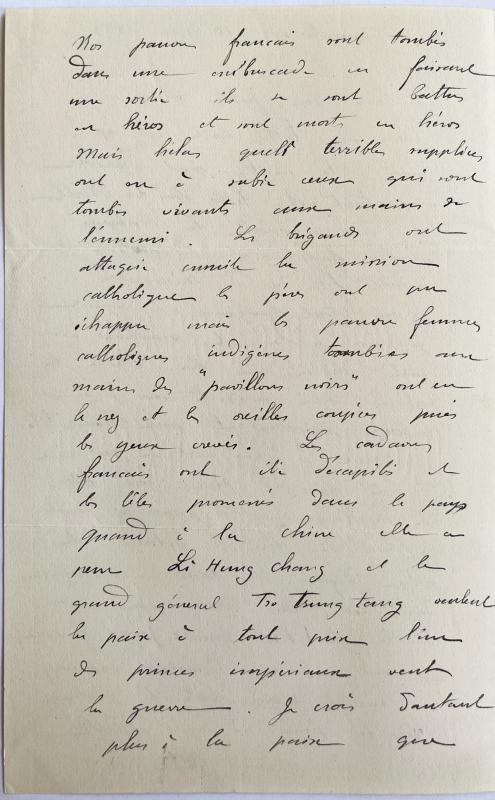 Nos pauvres français sont tombés
dans une embuscade en faisant
une sortie ils se sont battus
en héros et sont morts en héros
Mais hélas quels terribles supplices
ont eu à subir ceux qui sont
tombés vivants aux mains de
l'ennemi. Les brigands ont
attaqué ensuite la mission
catholique les pères ont pu
échapper mais les pauvres femmes
catholiques indigènes tombées aux
mains des "pavillons noirs" ont eu
le nez et les oreilles coupées puis
les yeux crevés. Les cadavres
français ont été décapités et
les têtes promenés dans le pays
quand à la chine elle a
peur Li Hung chang et le
grand général Tso Tsung tang veulent
la paix à tout prix l'un
des princes impériaux veut
la guerre. Je crois d'autant
plus à la paix que